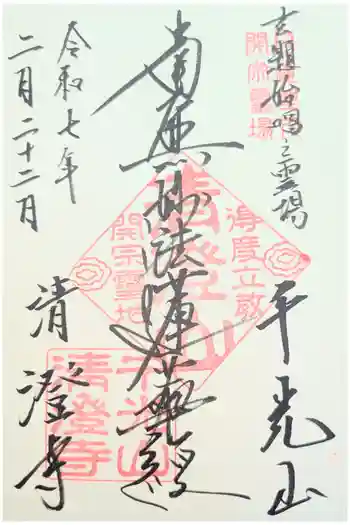 玄題始唱之霊場
開宗霊場
千光山
南無妙法蓮華経
清澄山
得度立教
開宗霊地
千光山
清澄寺
令和七年
二月二十二月
清澄寺